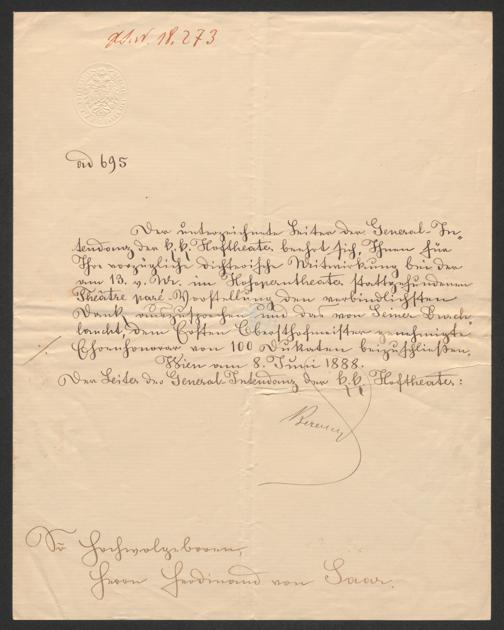 H.I.N. 18.273
ad 695
Der unterzeichnete Leiter der General-In-
tendanz der k. k. Hoftheater beehrt sich, Ihnen für
Ihre vorzügliche dichterische Mitwirkung bei der
am 13. v. Mts. im Hofopentheater stattgefundenen
Théâtre paré-Vorstellung den verbindlichsten
Dank auszusprechen und das von Seiner Durch-
laucht, dem Ersten Obersthofmeister genehmigte
Ehrenhonorar von 100 Dukaten beizuschließen.
Wien am 8. Juni 1888.
Der Leiter der General-Intendanz der k. k. Hoftheater:
Sr Hochwolgeboren,
Herrn Ferdinand von Saar.